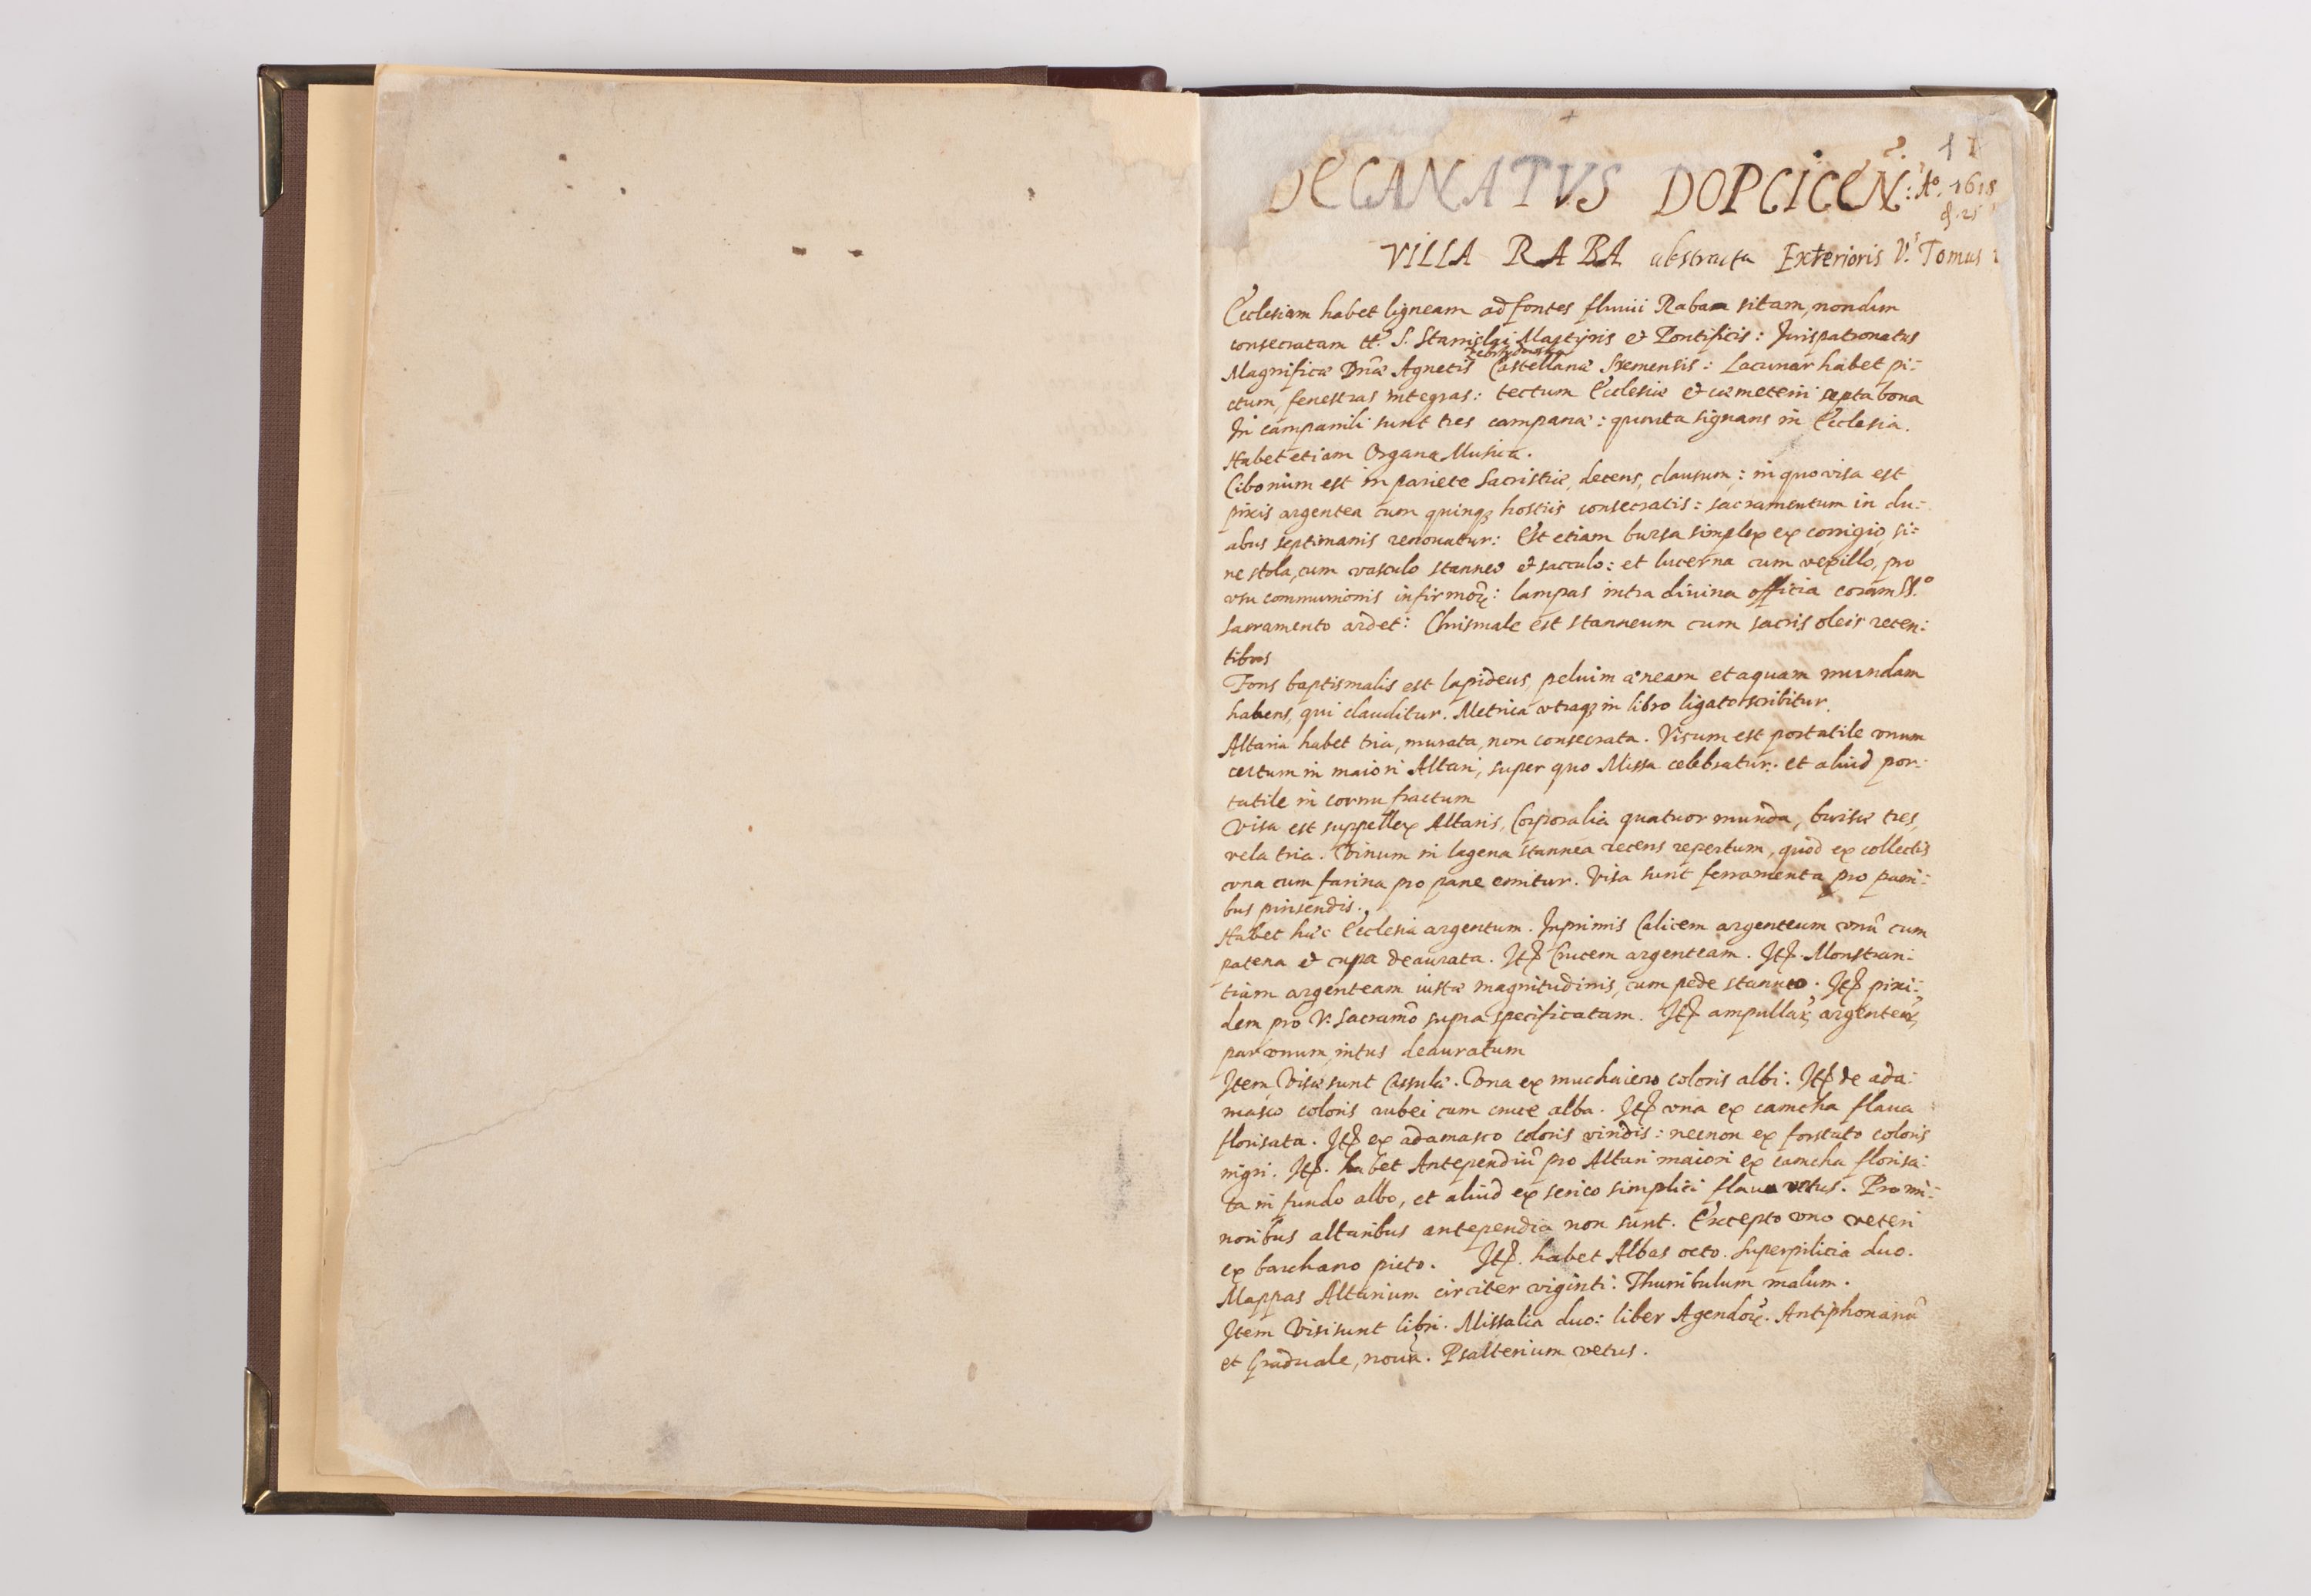 2. 11
DECANATVS DOPCICEN: Aº. 1618
& 25
VILLA RABA abstracta Exterioris V.s Tomus
Ecclesiam habet ligneam ad fontes fluuii Rabæ sitam, nondum
consecratam tt. S. Stanislai Martyris et Pontificis: Jurispatronatus
Magnificæ Dnæ Agnetis Castellanæ Sremensis: Lacunar habet pi-
ctum, fenestras integras: tectum Ecclesiæ et cæmeterii septa bona
In campanili sunt tres campanæ: quarta signans in Ecclesia.
Habet etiam Organa Musica.
Cibonium est in pariete Sacristiæ, decens, clausum: in quo visa est
pixis argentea cum quinqȝ hostiis consecratis: sacramentum in du-
abus septimanis renouatur: Est etiam bursa simplex ex corrigio, si-
ne stola, cum vasculo stanneo et sacculo: et lucerna cum vexillo, pro
vsu communionis infirmoꝝ: lampas intra diuina officia coram SS.º
Sacramento ardet: Chrismale est stanneum cum sacris oleis recen-
tibus
Fons baptismalis est lapideus, peluim æneam et aquam mundam
habens, qui clauditur. Metrica vtraqȝ in libro ligato scribitur.
Altaria habet tria, murata, non consecrata. Visum est portatile vnum
certum in maiori Altari, super quo Missa celebratur: et aliud por-
tatile in cornu fractum
Visa est suppellex Altaris, Corporalia quatuor munda, bursæ tres,
vela tria. Vinum in lagena stannea recens repertum, quod ex collectis
vna cum farina pro pane emitur. Visa sunt ferramenta pro pani-
bus pinsendis.
Habet hæc Ecclesia argentum. Inprimis Calicem argenteum vnũ cum
patena et cupa deaurata. Itẽ Crucem argenteam. Itẽ. Monstran-
tiam argenteam iustæ magnitudinis, cum pede stanneo. Itẽ pixi-
dem pro V. Sacramõ supra specificatam. Itẽ ampullaꝝ argenteaꝝ,
par vnum, intus deauratum
Item Visæ sunt Casulæ. Vna ex muchaiero coloris albi. Itẽ de ada-
masco coloris rubei cum cruce alba. Itẽ vna ex camcha flaua
florisata. Itẽ ex adamasco coloris viridis: necnon ex forstato coloris
nigri. Itẽ. habet Antependiũ pro Altari maiori ex camcha florisa-
ta in fundo albo, et aliud ex serico simplici flauo vetus. Pro mi-
noribus altaribus antependia non sunt. Excepto vno veteri
ex barchano picto. Itẽ. habet Albas octo. Superpilicia duo.
Mappas Altarium circiter viginti: Thuribulum malum.
Item Visi sunt libri. Missalia duo: liber Agendoꝝ. Antiphonariũ
et Graduale, noua. Psalterium vetus.